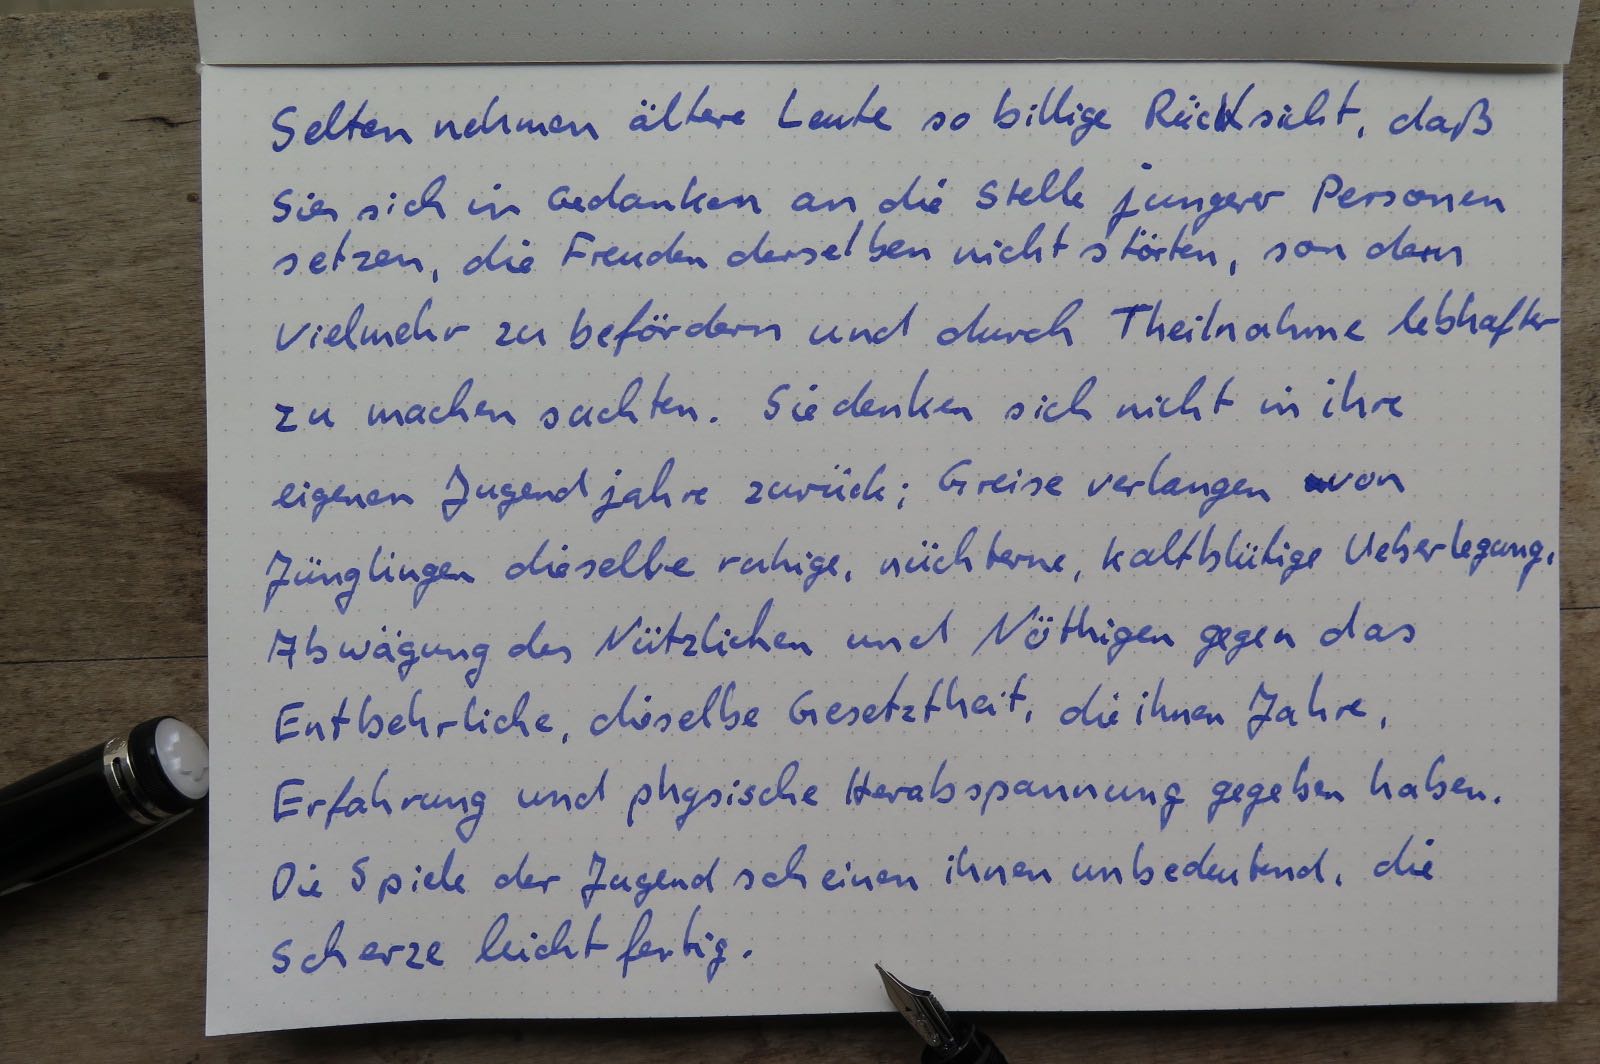 Selten nehmen ältere Leute so billige Rücksicht, daß
Sie sich in Gedanken an die Stelle jungerer Personen
setzen, die Freuden derselben nicht störten, sondern
vielmehr zu befördern und durch Theilnahme lebhafter
zu machen suchten. Sie denken sich nicht in ihre
eigenen Jugendjahre zurück; Greise verlangen von
Jünglingen dieselbe ruhige, nüchterne, kaltblütige Ueberlegung,
Abwägung des Nützlichen und Nöthigen gegen das
Entbehrliche, dieselbe Gesetztheit, die ihnen Jahre,
Erfahrung und physische Herabspannung gegeben haben.
Die Spiele der Jugend scheinen ihnen unbedeutend, die
Scherze leichtfertig.